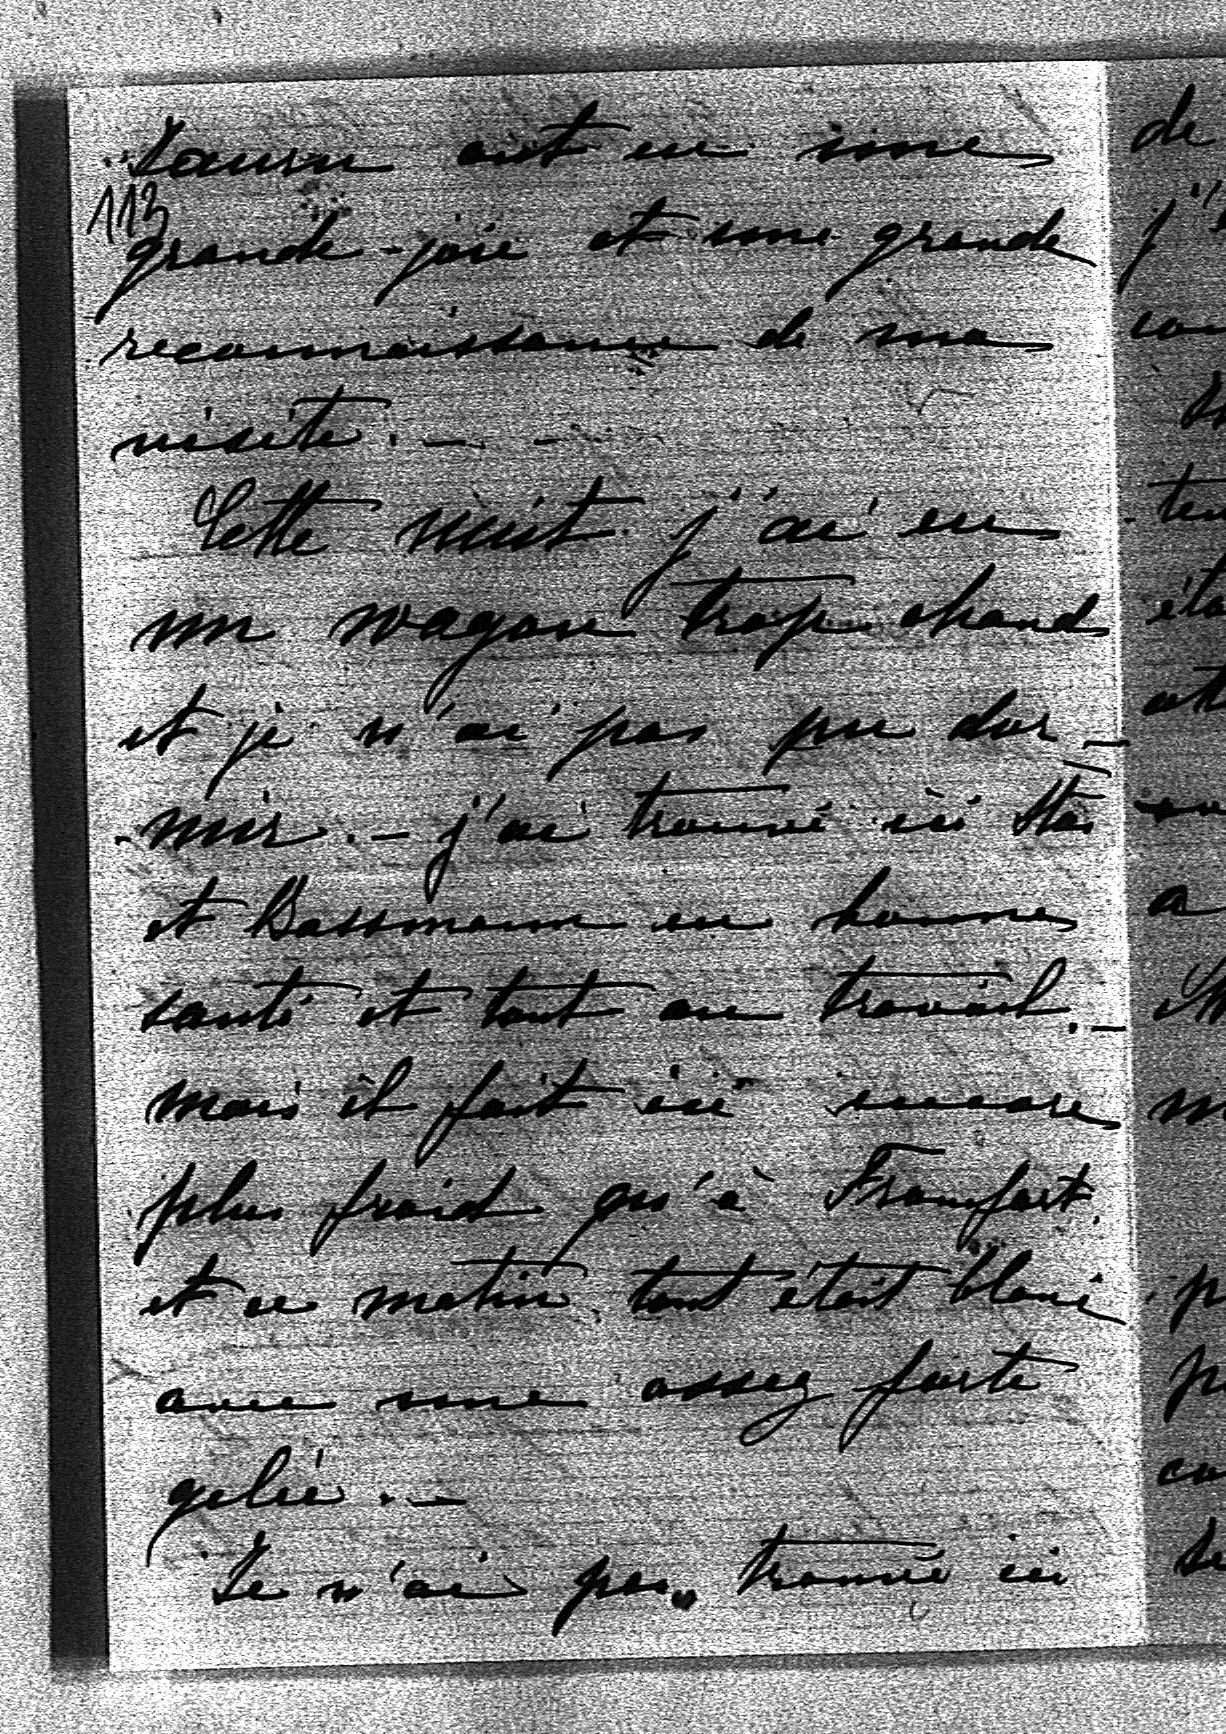 ont eu une
113
grande joie et une grande
reconnaissance de ma
visite. — -
Cette nuit j'ai eu
un wagon trop chaud
et je n'ai pas pu dor-
mir. — j'ai trouvé ici
et Bassmann en bonne
santé et tout au travail. —
mais il fait ici encore
plus froid qu'à Francfort.
et ce matin tout était blanc
avec une assez forte
gelée. —
Je n'ai pas trouvé ici
de